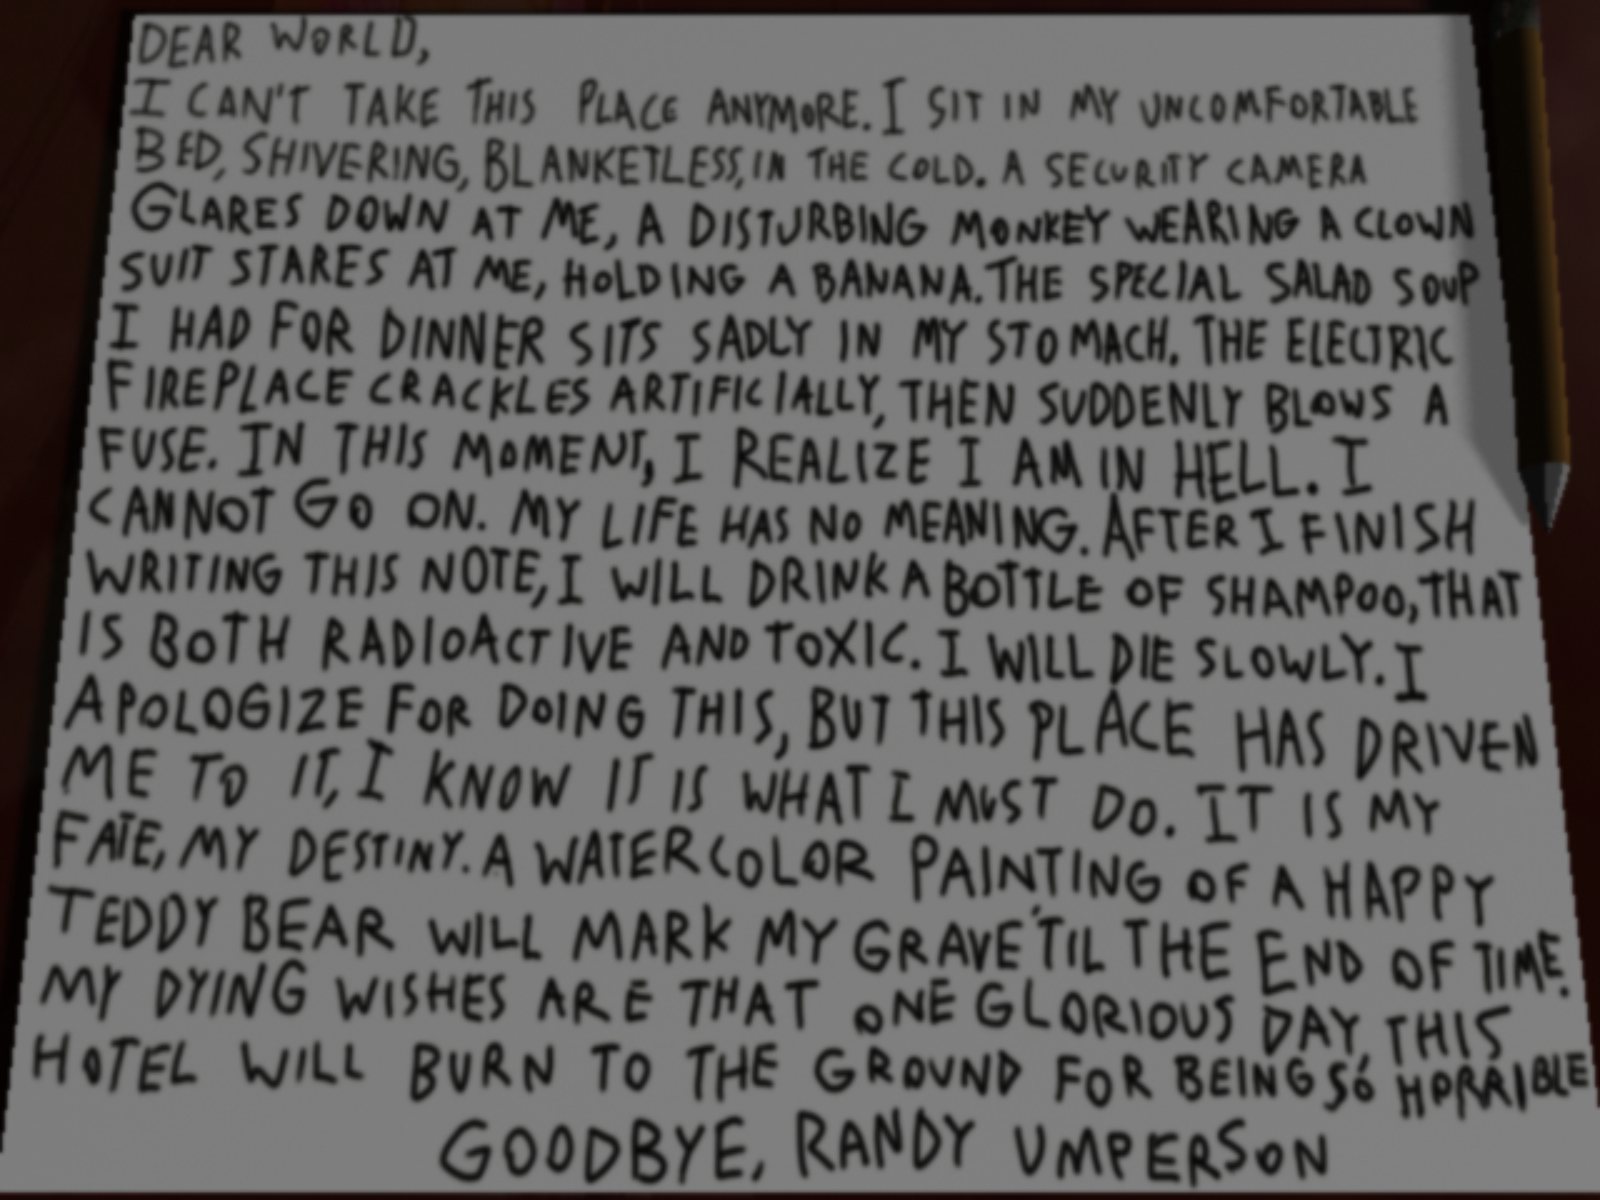 DEAR WORLD,
I CAN'T TAKE THIS PLACE ANYMORE. I SIT IN MY UNCOMFORTABLE
BED, SHIVERING, BLANKETLESS, IN THE COLD. A SECURITY CAMERA
GLARES DOWN AT ME, A DISTURBING MONKEY WEARING A CLOWN
SUIT STARES AT ME, HOLDING A BANANA. THE SPECIAL SALAD SOUP
I HAD FOR DINNER SITS SADLY IN MY STOMACH. THE ELECTRIC
FIREPLACE CRACKLES ARTIFICIALLY, THEN SUDDENLY BLOWS A
FUSE. IN THIS MOMENT, I REALIZE I AM IN HELL. I
CANNOT GO ON. MY LIFE HAS NO MEANING. AFTER I FINISH
WRITING THIS NOTE, I WILL DRINK A BOTTLE OF SHAMPOO, THAT
IS BOTH RADIOACTIVE AND TOXIC. I WILL DIE SLOWLY. I
APOLOGIZE FOR DOING THIS, BUT THIS PLACE HAS DRIVEN
ME TO IT, I KNOW IT IS WHAT I MUST DO. IT IS MY
FATE, MY DESTINY. A WATERCOLOR PAINTING OF A HAPPY
TEDDY BEAR WILL MARK MY GRAVE 'TIL THE END OF TIME.
MY DYING WISHES ARE THAT ONE GLORIOUS DAY, THIS
HOTEL WILL BURN TO THE GROUND FOR BEING SO HORRIBLE
GOODBYE, RANDY UMPERSON